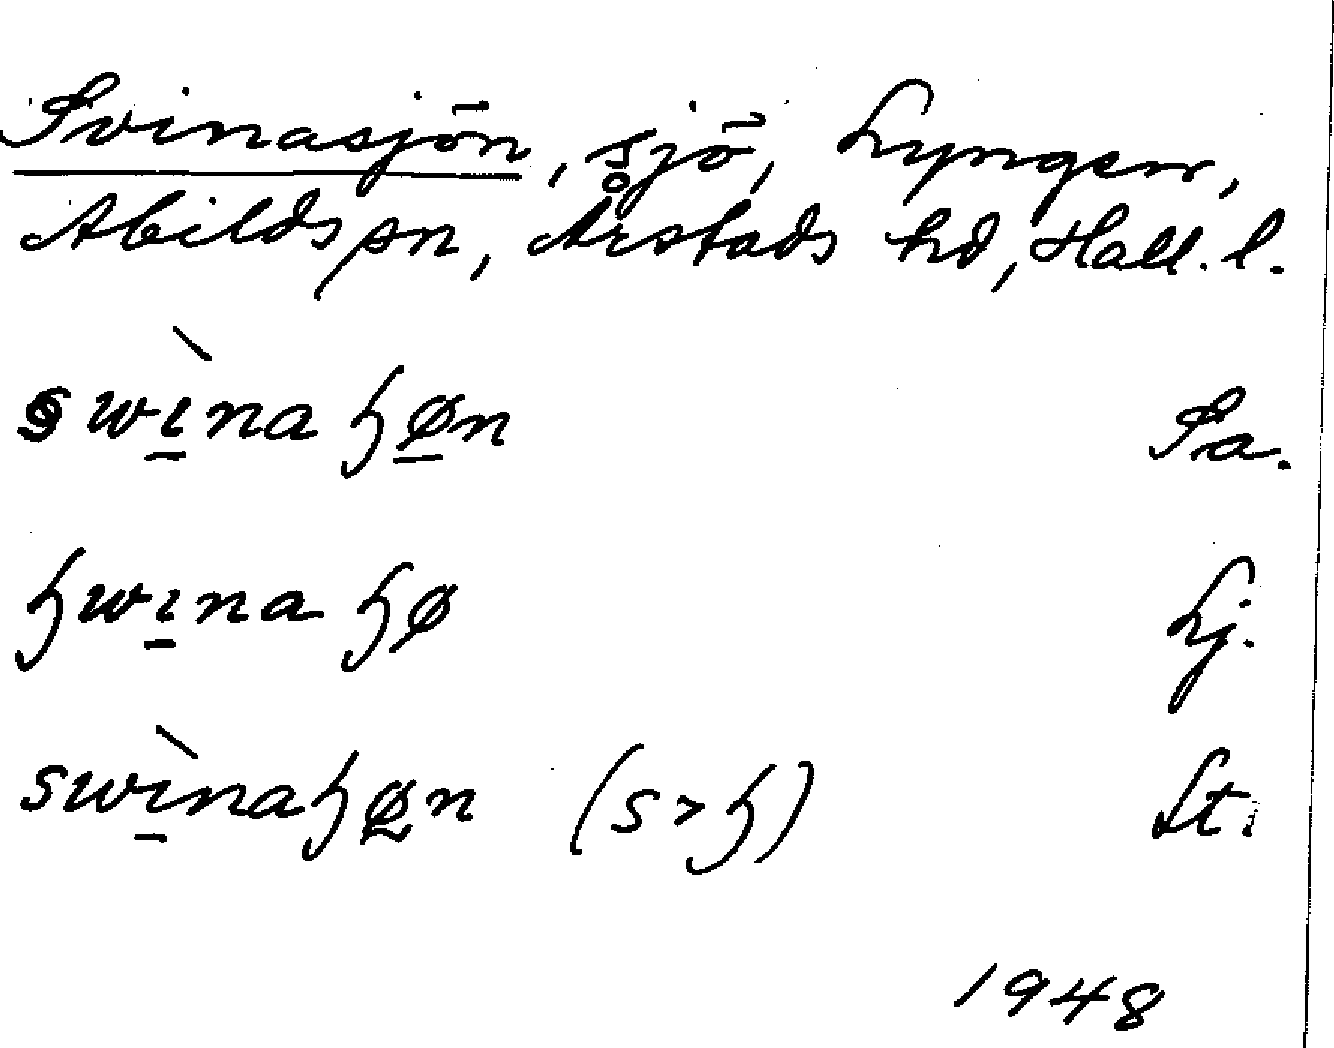 Svinasjön, sjö, Lyngen,
Abilds sn, Årstads hd, Hall. l.
swı̠̀na ɧø̠n Sa.
ɧwı̠na ɧø Lj.
swı̠̀naɧøn (s>ɧ) St.
1948